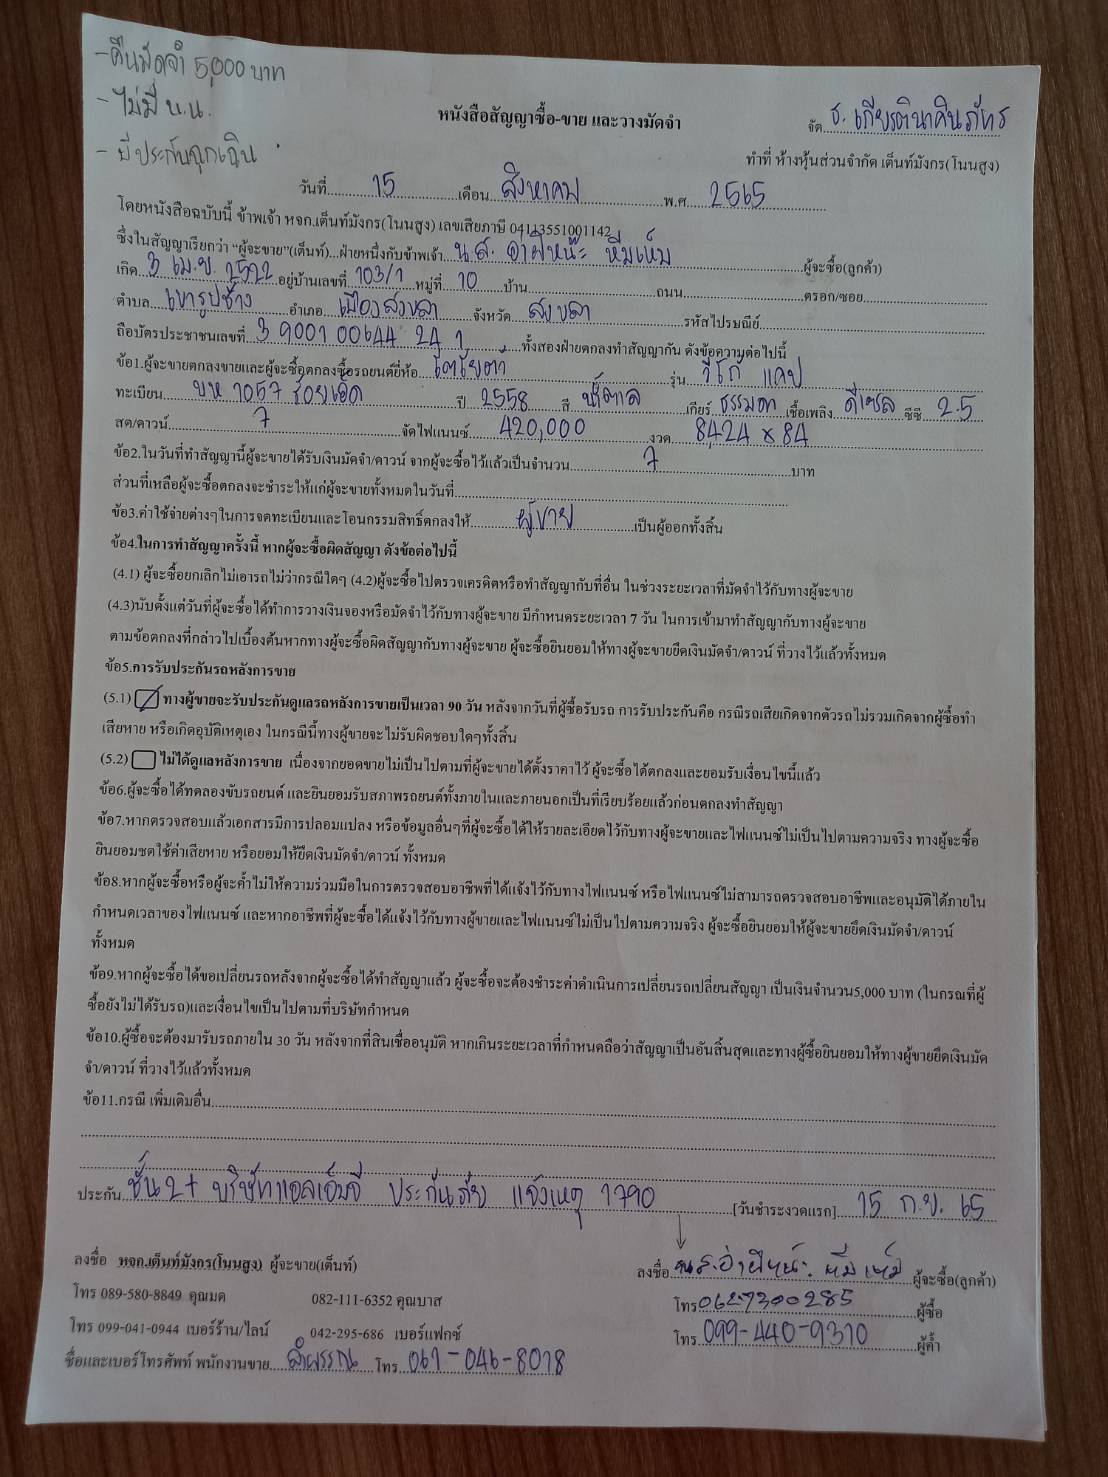 -คืนมัดจำ 5,000 บาท
-ไม่มี น.น.
-มีประกันฉุกเฉิน
หนังสือสัญญาซื้อ-ขาย และวางมัดจำ
จัด ธ. เกียรตินาคินภัทร
ทำที่ ห้างหุ้นส่วนจำกัด เต็นท์มังกร(โนนสูง)
วันที่ 15 เดือน สิงหาคม พ.ศ. 2565
โดยหนังสือฉบับนี้ ข้าพเจ้า หจก.เต็นท์มังกร(โนนสูง) เลขเสียภาษี 04113551001142
ซึ่งในสัญญาเรียกว่า "ผู้จะขาย"(เต็นท์)...ฝ่ายหนึ่งกับข้าพเจ้า น.ส. อำฝีหน๊ะ หีมเห็ม ผู้จะซื้อ(ลูกค้า)
เกิด 3 เม.ย. 2522 อยู่บ้านเลขที่ 103/1 หมู่ที่ 10 บ้าน ถนน ตรอก/ซอย
ตำบล เขารูปช้าง อำเภอ เมืองสงขลา จังหวัด สงขลา รหัสไปรษณีย์
ถือบัตรประชาชนเลขที่ 3 9001 00644 24 1 ทั้งสองฝ่ายตกลงทำสัญญากัน ดังข้อความต่อไปนี้
ข้อ1.ผู้จะขายตกลงขายและผู้จะซื้อตกลงซื้อรถยนต์ยี่ห้อ โตโยต้า รุ่น วีโก้ แคป
ทะเบียน บห 1057 ร้อยเอ็ด ปี 2558 สี น้ำตาล เกียร์ ธรรมดา เชื้อเพลิง ดีเซล ซีซี 2.5
สด/ดาวน์ 7 จัดไฟแนนซ์ 420,000 งวด 8,424 x 84
ข้อ2.ในวันที่ทำสัญญานี้ผู้จะขายได้รับเงินมัดจำ/ดาวน์ จากผู้จะซื้อไว้แล้วเป็นจำนวน 7 บาท
ส่วนที่เหลือผู้จะซื้อตกลงจะชำระให้แก่ผู้จะขายทั้งหมดในวันที่
ข้อ3.ค่าใช้จ่ายต่างๆในการจดทะเบียนและโอนกรรมสิทธิ์ตกลงให้ ผู้ขาย เป็นผู้ออกทั้งสิ้น
ข้อ4.ในการทำสัญญาครั้งนี้ หากผู้จะซื้อผิดสัญญา ดังข้อต่อไปนี้
(4.1) ผู้จะซื้อยกเลิกไม่เอารถไม่ว่ากรณีใดๆ (4.2)ผู้จะซื้อไปตรวจเครดิตหรือทำสัญญากับที่อื่น ในช่วงระยะเวลาที่มัดจำไว้กับทางผู้จะขาย
(4.3)นับตั้งแต่วันที่ผู้จะซื้อได้ทำการวางเงินจองหรือมัดจำไว้กับทางผู้จะขาย มีกำหนดระยะเวลา 7 วัน ในการเข้ามาทำสัญญากับทางผู้จะขาย
ตามข้อตกลงที่กล่าวไปเบื้องต้นหากทางผู้จะซื้อผิดสัญญากับทางผู้จะขาย ผู้จะซื้อยินยอมให้ทางผู้จะขายยึดเงินมัดจำ/ดาวน์ ที่วางไว้แล้วทั้งหมด
ข้อ5.การรับประกันรถหลังการขาย
(5.1) ทางผู้ขายจะรับประกันดูแลรถหลังการขายเป็นเวลา 90 วัน หลังจากวันที่ผู้ซื้อรับรถ การรับประกันคือ กรณีรถเสียเกิดจากตัวรถไม่รวมเกิดจากผู้ซื้อทำ
เสียหาย หรือเกิดอุบัติเหตุเอง ในกรณีนี้ทางผู้ขายจะไม่รับผิดชอบใดๆทั้งสิ้น
(5.2) ไม่ได้ดูแลหลังการขาย เนื่องจากยอดขายไม่เป็นไปตามที่ผู้จะขายได้ตั้งราคาไว้ ผู้จะซื้อได้ตกลงและยอมรับเงื่อนไขนี้แล้ว
ข้อ6.ผู้จะซื้อได้ทดลองขับรถยนต์ และยินยอมรับสภาพรถยนต์ทั้งภายในและภายนอกเป็นที่เรียบร้อยแล้วก่อนตกลงทำสัญญา
ข้อ7.หากตรวจสอบแล้วเอกสารมีการปลอมแปลง หรือข้อมูลอื่นๆที่ผู้จะซื้อได้ให้รายละเอียดไว้กับทางผู้จะขายและไฟแนนซ์ไม่เป็นไปตามความจริง ทางผู้จะซื้อ
ยินยอมชดใช้ค่าเสียหาย หรือยอมให้ยึดเงินมัดจำ/ดาวน์ ทั้งหมด
ข้อ8.หากผู้จะซื้อหรือผู้จะค้ำไม่ให้ความร่วมมือในการตรวจสอบอาชีพที่ได้แจ้งไว้กับทางไฟแนนซ์ หรือไฟแนนซ์ไม่สามารถตรวจสอบอาชีพและอนุมัติได้ภายใน
กำหนดเวลาของไฟแนนซ์ และหากอาชีพที่ผู้จะซื้อได้แจ้งไว้กับทางผู้ขายและไฟแนนซ์ไม่เป็นไปตามความจริง ผู้จะซื้อยินยอมให้ผู้จะขายยึดเงินมัดจำ/ดาวน์
ทั้งหมด
ข้อ9.หากผู้จะซื้อได้ขอเปลี่ยนรถหลังจากผู้จะซื้อได้ทำสัญญาแล้ว ผู้จะซื้อจะต้องชำระค่าดำเนินการเปลี่ยนรถเปลี่ยนสัญญา เป็นเงินจำนวน5,000 บาท (ในกรณที่ผู้
ซื้อยังไม่ได้รับรถ)และเงื่อนไขเป็นไปตามที่บริษัทกำหนด
ข้อ10.ผู้ซื้อจะต้องมารับรถภายใน 30 วัน หลังจากที่สินเชื่ออนุมัติ หากเกินระยะเวลาที่กำหนดถือว่าสัญญาเป็นอันสิ้นสุดและทางผู้ซื้อยินยอมให้ทางผู้ขายยึดเงินมัด
จำ/ดาวน์ ที่วางไว้แล้วทั้งหมด
ข้อ11.กรณี เพิ่มเติมอื่น
ประกัน ชั้น 2+ บริษัทแอลเอ็มจี ประกันภัย แจ้งเหตุ 1790 [วันชำระงวดแรก] 15 ก.ย. 65
ลงชื่อ หจก.เต็นท์มังกร(โนนสูง) ผู้จะขาย(เต็นท์)
ลงชื่อ น.ส.อำฝีหน๊ะ หีมเห็ม ผู้จะซื้อ(ลูกค้า)
โทร 089-580-8849 คุณมด 082-111-6352 คุณบาส
โทร 0627300285 ผู้ซื้อ
โทร 099-041-0944 เบอร์ร้าน/ไลน์ 042-295-686 เบอร์แฟกซ์
โทร 099-440-9310 ผู้ค้ำ
ชื่อและเบอร์โทรศัพท์ พนักงานขาย ลำพรรณ โทร 061-046-8018